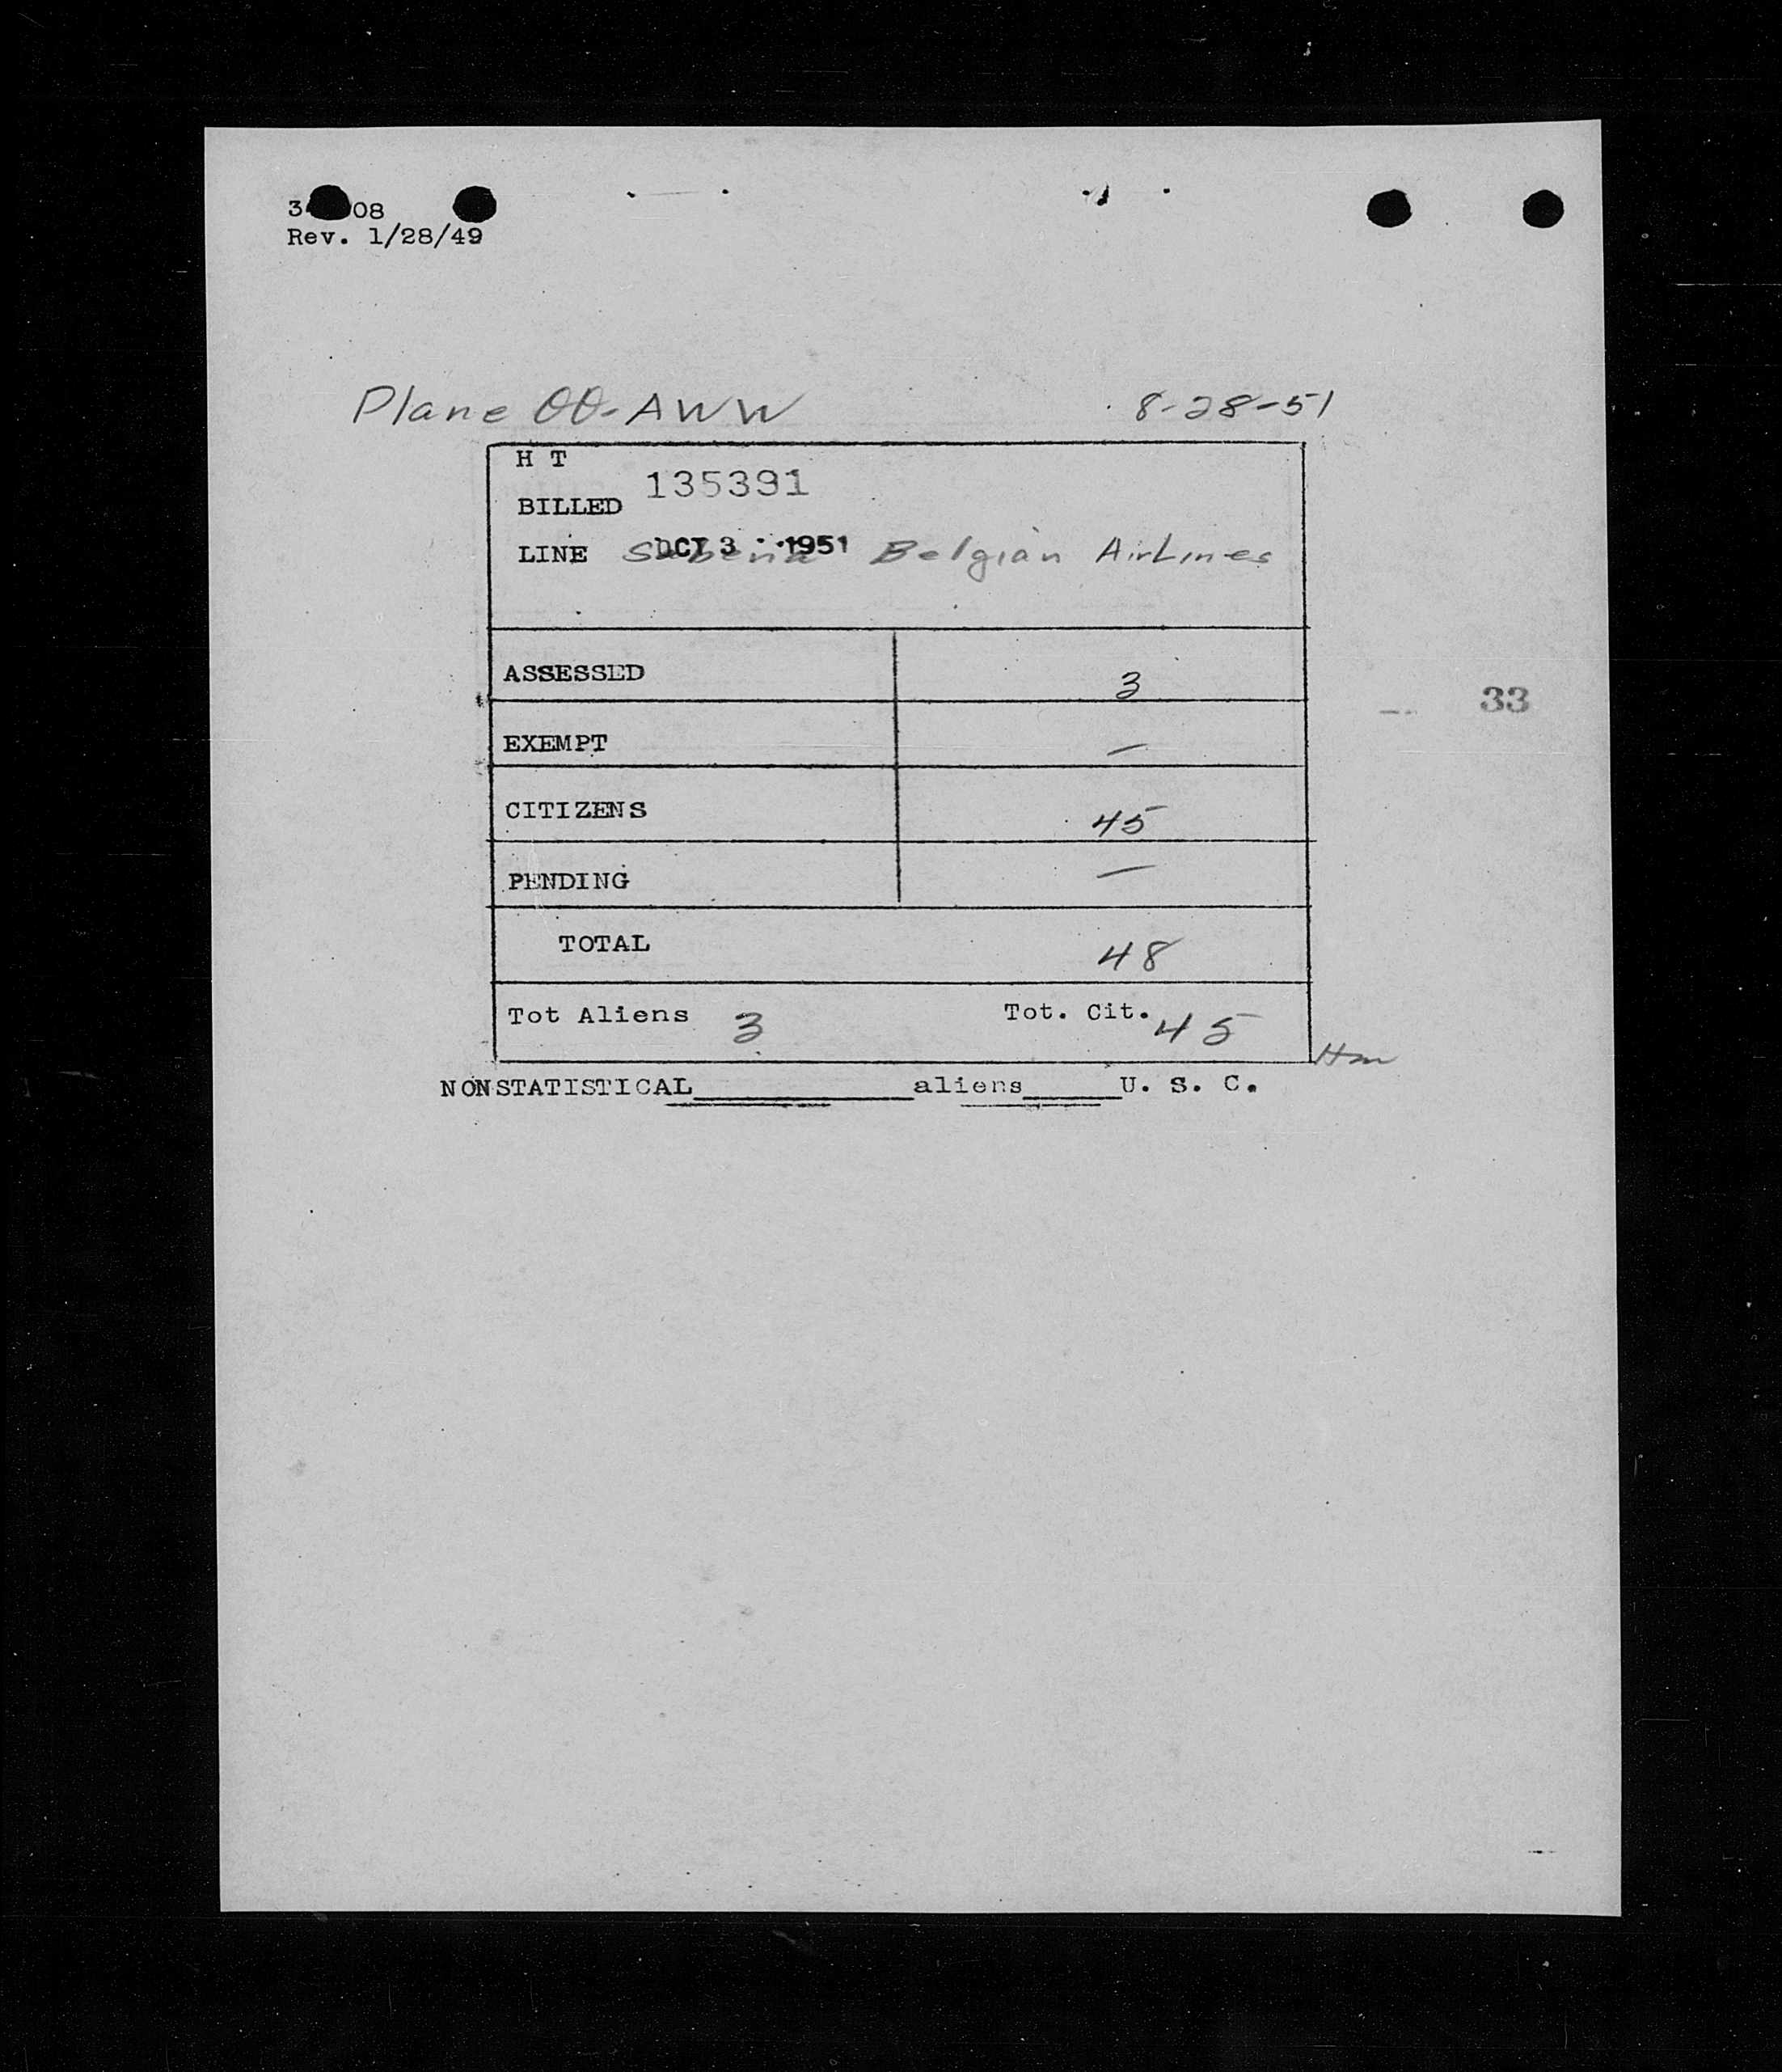 08
Rev. 1/28/49
Plane OO-AWW 8-28-51
H T
135391
BILLED
OCT 3 1951
LINE Sabena Belgian AirLines
ASSESSED 3
33
EXEMPT —
CITIZENS 45
PENDING —
TOTAL 48
Tot Aliens 3 Tot. Cit. 45
NONSTATISTICAL__________aliens_____U. S. C.